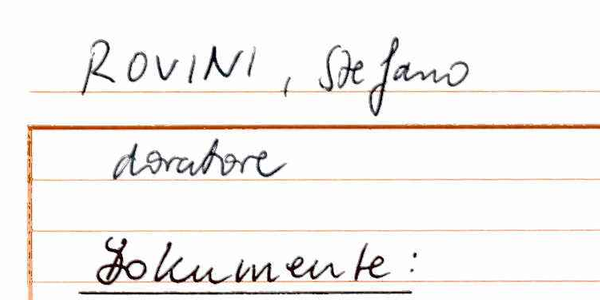 ROVINI, Stefano
doratore
Dokumente: